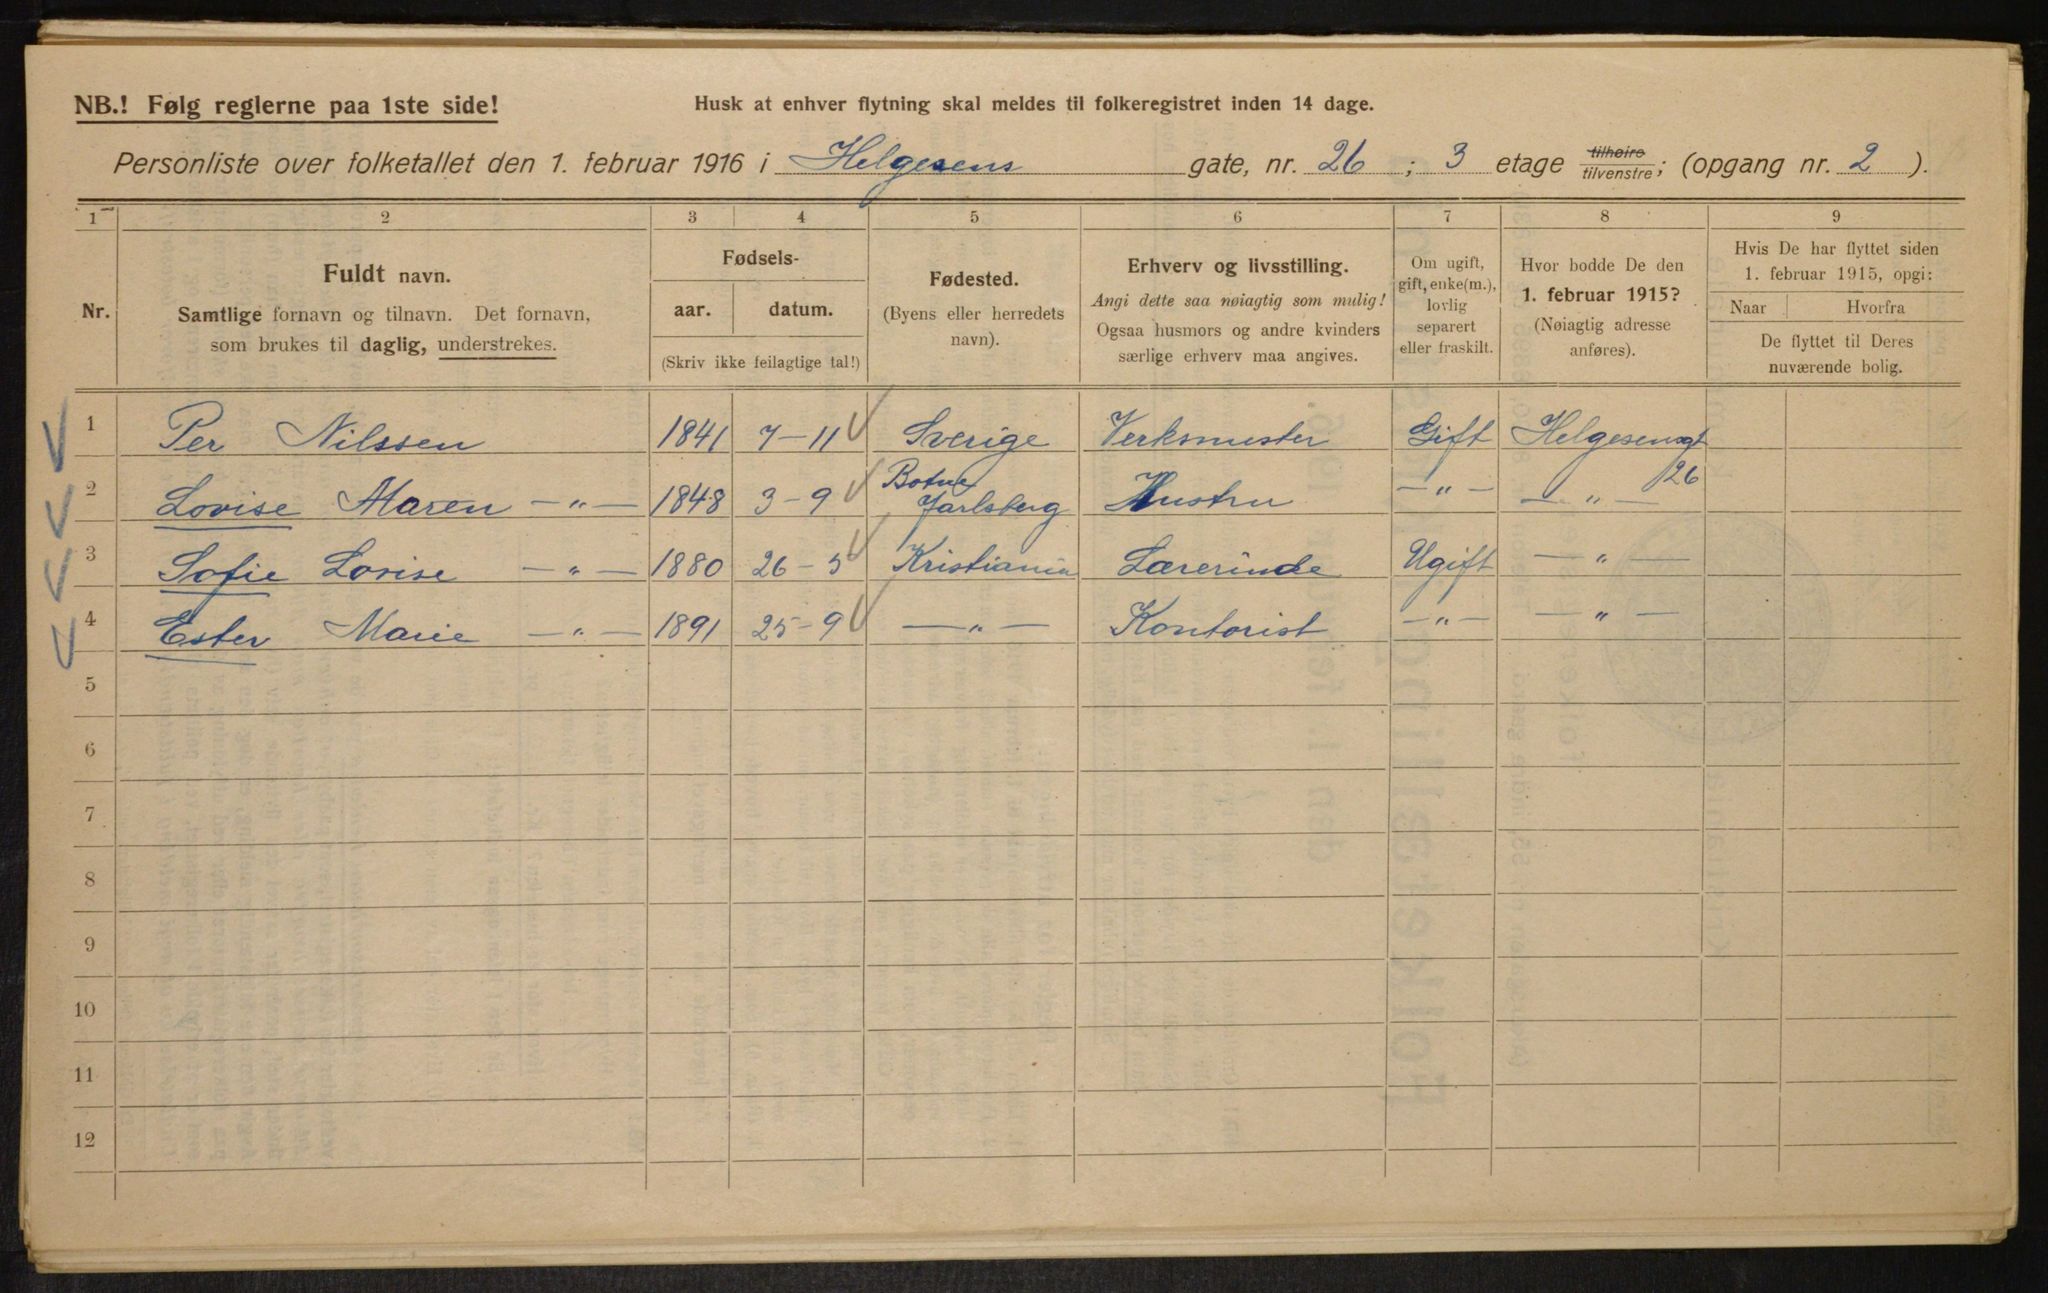 NB.! Følg reglerne paa 1ste side!
Husk at enhver flytning skal meldes til folkeregistret inden 14 dage.
Personliste over folketallet den 1. februar 1916 i Helgesens gate, nr. 26 ; 3 etage tilhøire tilvenstre; (opgang nr. 2 ).
1 2 3 4 5 6 7 8 9
Nr.
Fuldt navn.
Samtlige fornavn og tilnavn. Det fornavn,
som brukes til daglig, understrekes.
Fødsels-
aar. datum.
(Skriv ikke feilagtige tal!)
Fødested.
(Byens eller herredets
navn).
Erhverv og livsstilling.
Angi dette saa nøiagtig som mulig!
Ogsaa husmors og andre kvinders
særlige erhverv maa angives.
Om ugift,
gift, enke(m.),
lovlig
separert
eller fraskilt.
Hvor bodde De den
1. februar 1915?
(Nøiagtig adresse
anføres).
Hvis De har flyttet siden
1. februar 1915, opgi:
Naar Hvorfra
De flyttet til Deres
nuværende bolig.
1 Per Nilssen 1841 7-11 Sverige Verksmester Gift Helgesensgt 26
2 Lovise Maren -"- 1848 3-9 Botne Jarlsberg Hustru -"- -"-
3 Sofie Lovise -"- 1880 26-5 Kristiania Lærerinde Ugift -"-
4 Ester Marie -"- 1891 25-9 -"- Kontorist -"- -"-
5
6
7
8
9
10
11
12